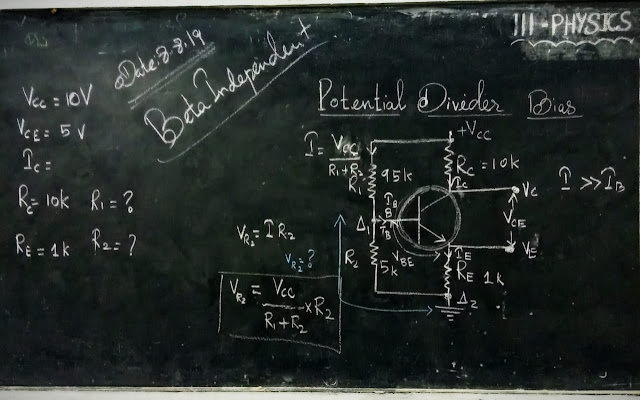 III-PHYSICS
Date:8.8.19
Beta Independent
Potential Divider Bias
V_CC = 10V
V_CE = 5V
I_C =
R_C = 10k R_1 = ?
R_E = 1k R_2 = ?
+V_CC
I = V_CC / R_1+R_2
R_1 95k
R_C = 10k
I_C
V_C
I >> I_B
I_B
Δ_1
B
I_B
V_CE
V_R2 = I R_2
V_R2 = ?
R_2
5k
V_BE
I_E
V_E
R_E 1k
V_R2 = V_CC / R_1+R_2 × R_2
Δ_2